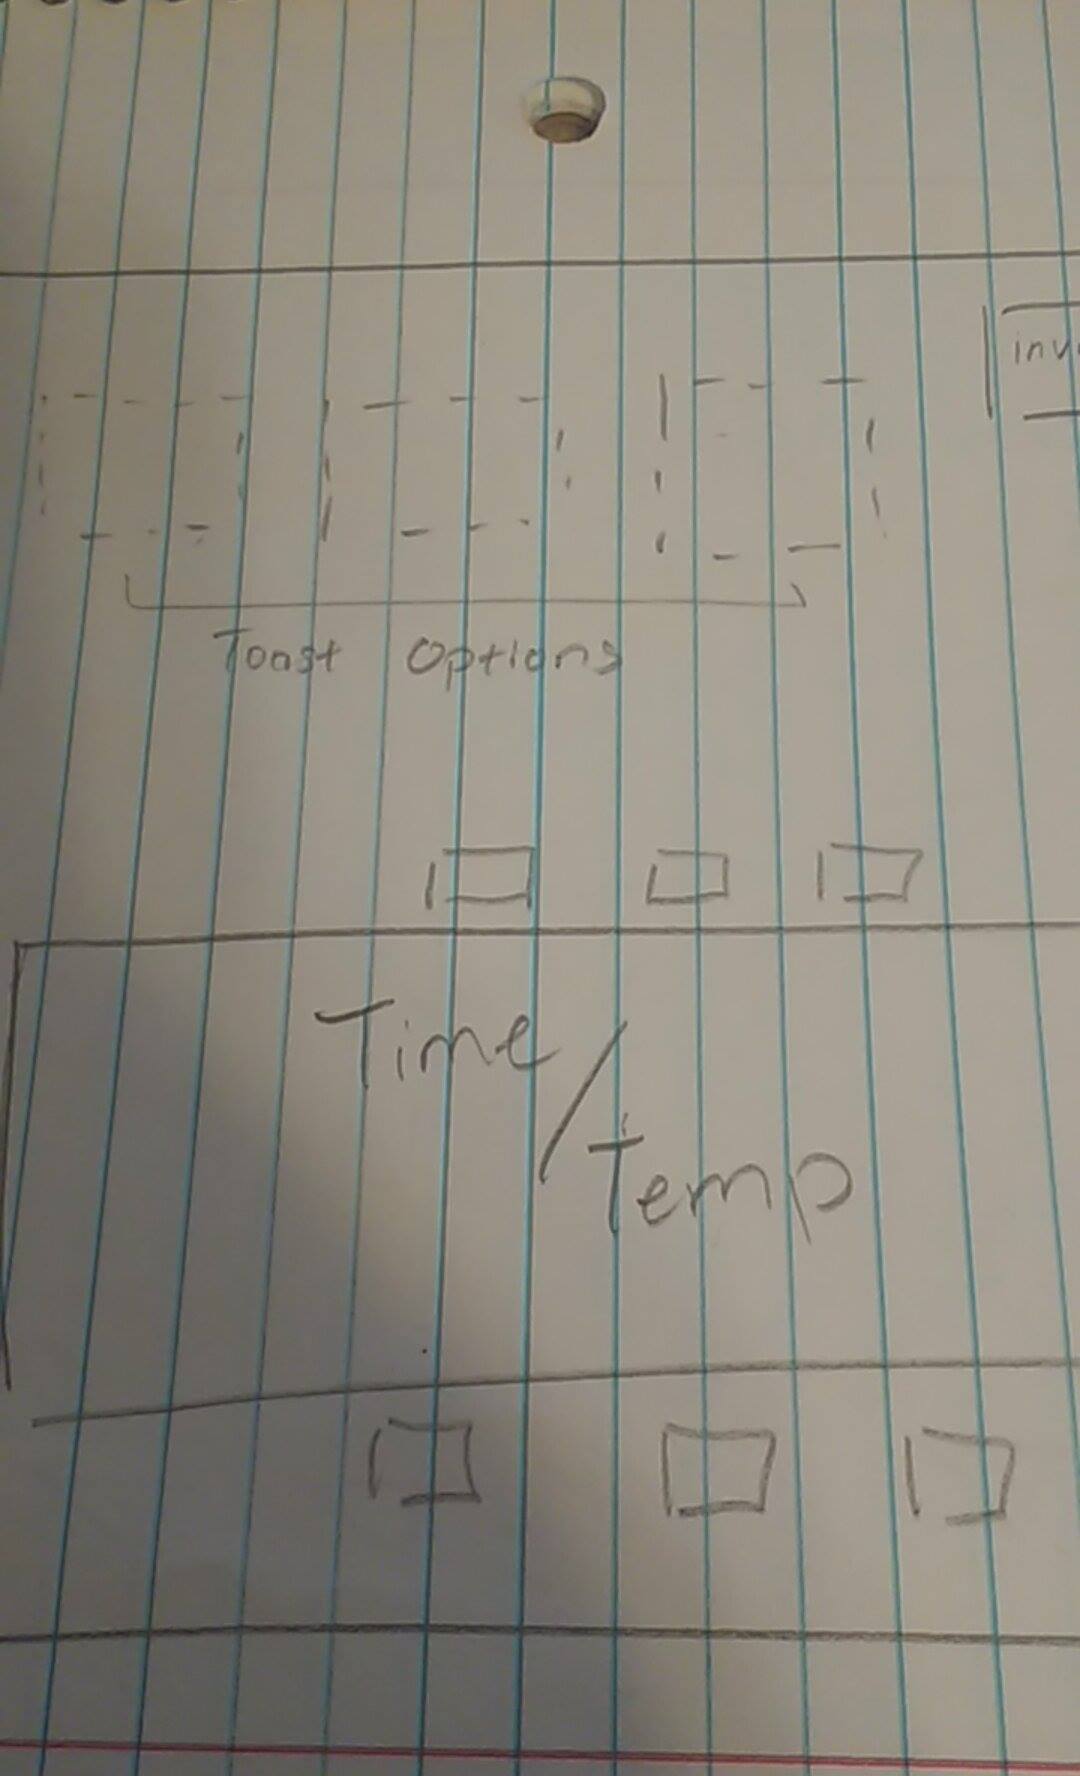 Toast Options
Time/
Temp